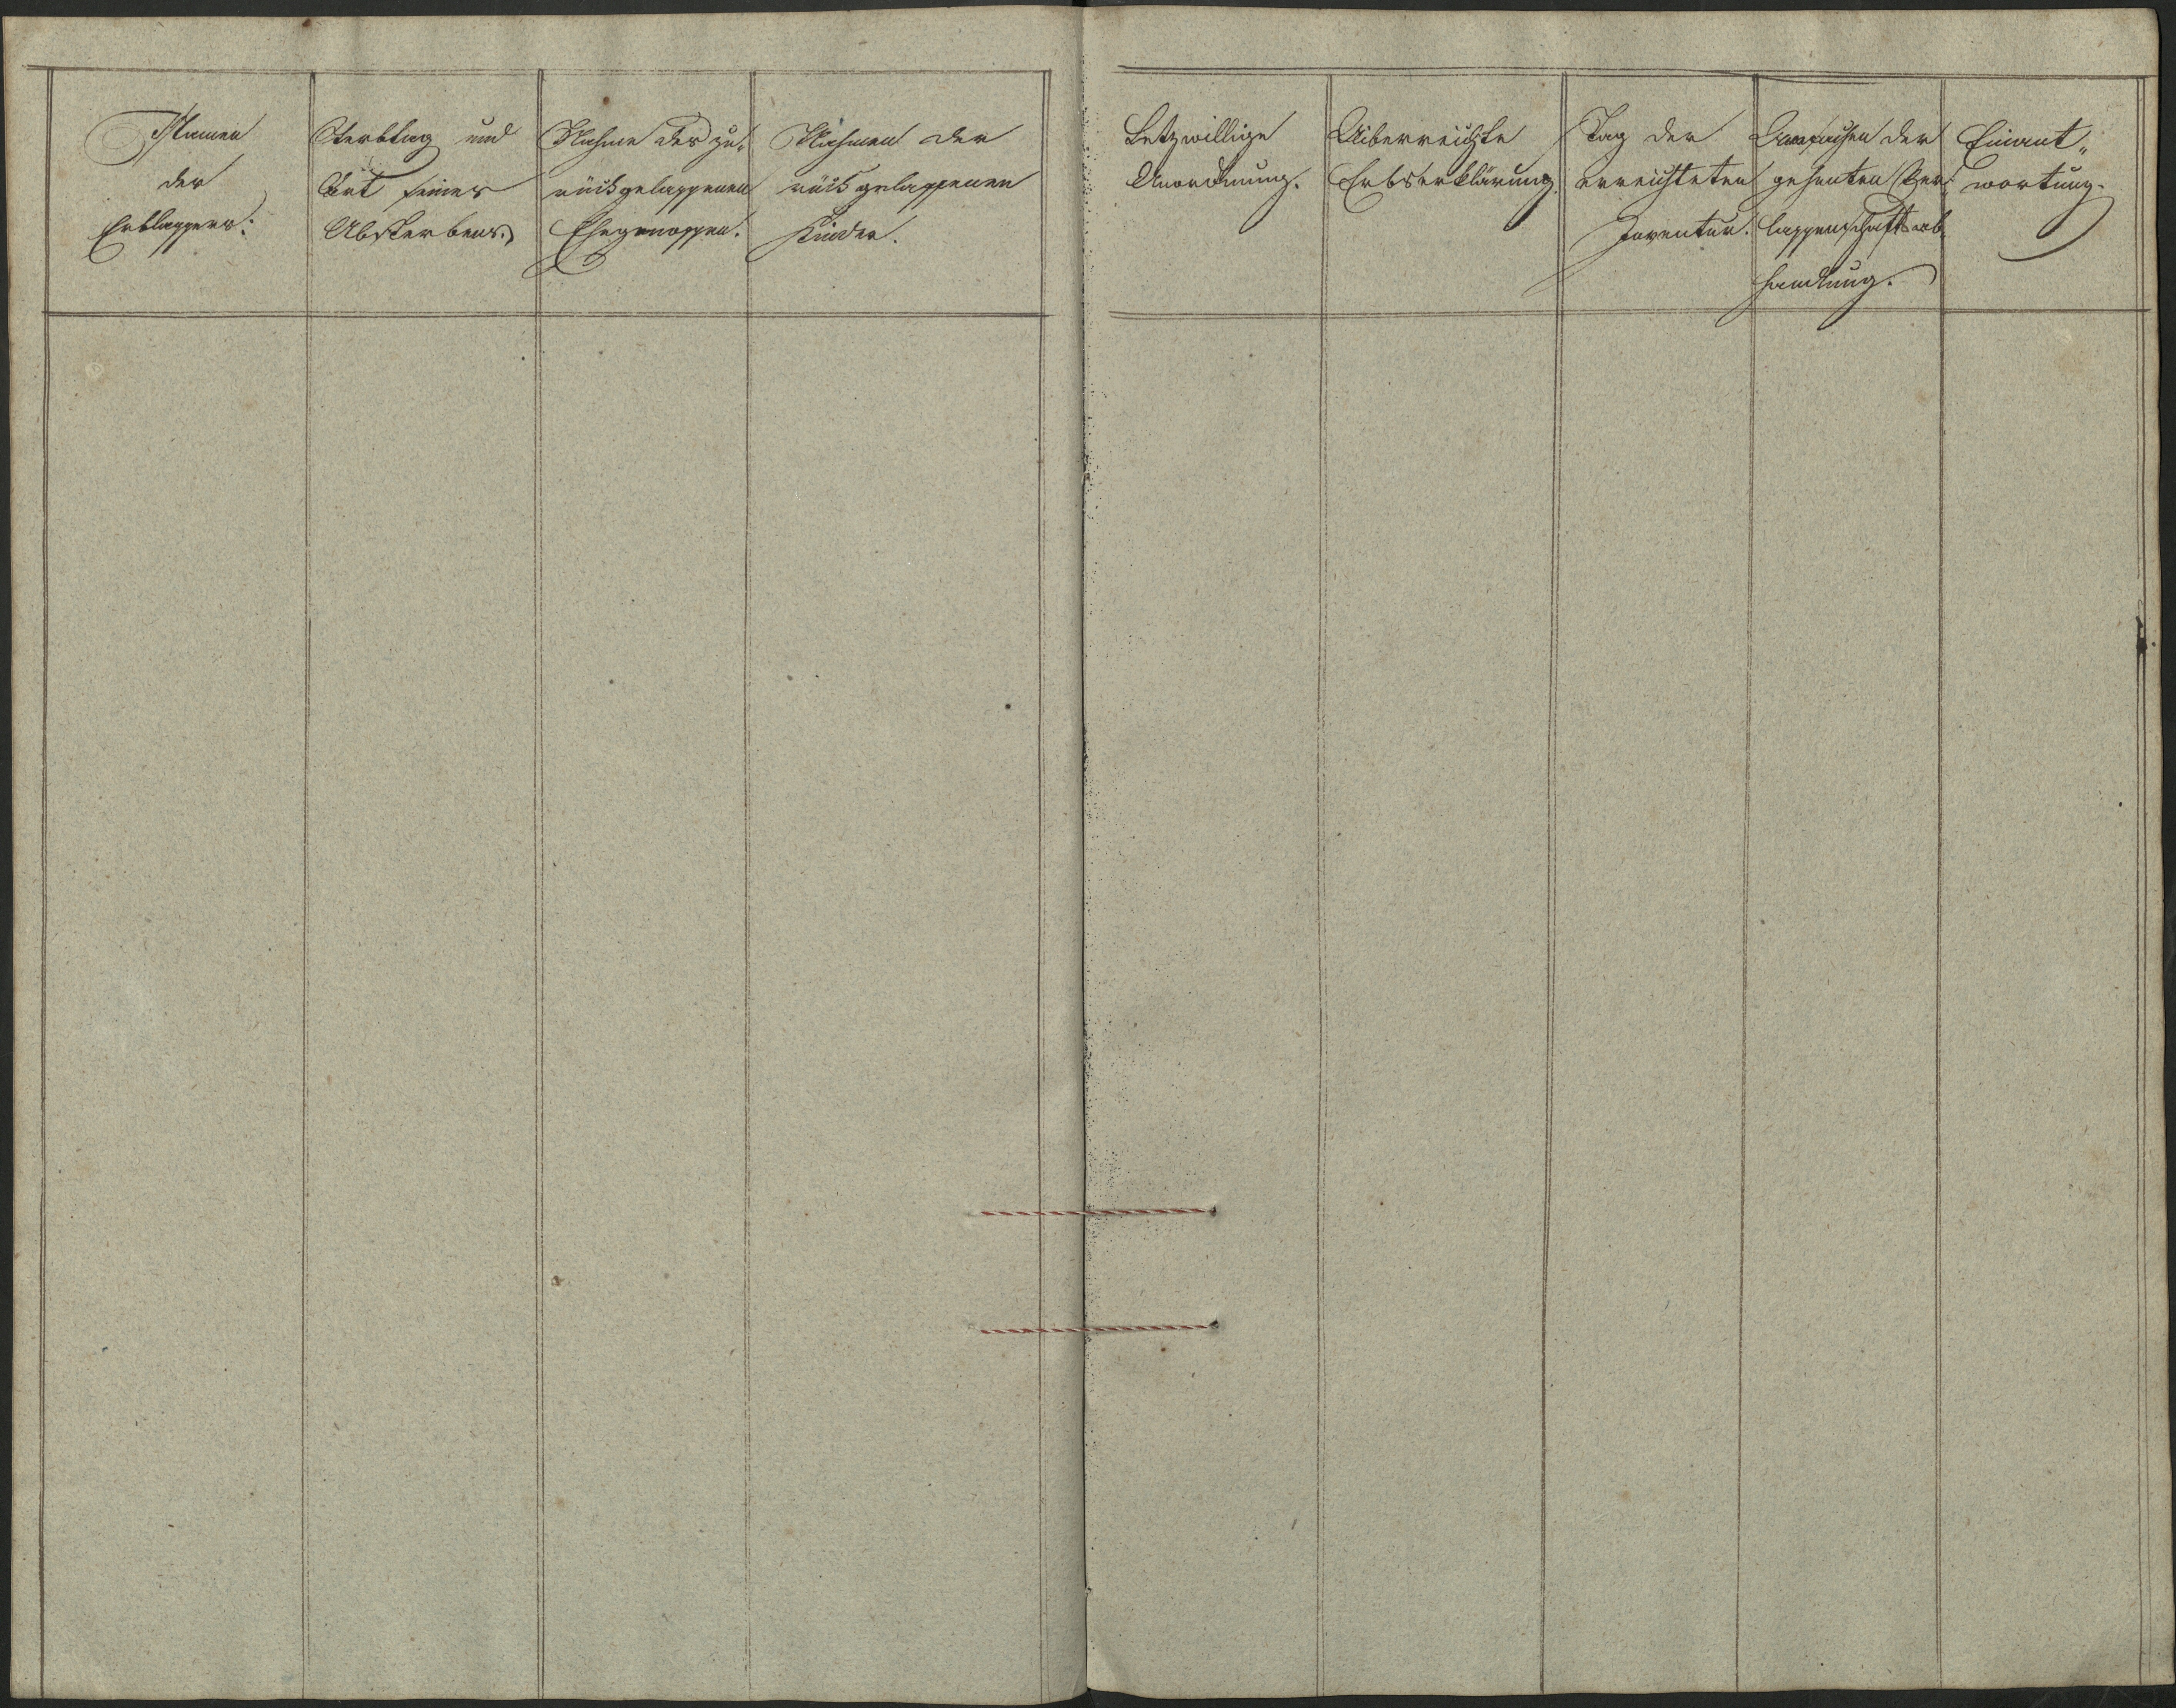 Namen
des
Erblassers.
Sterbtag und
Art seines
Absterbens.
Nahme des zu„
rückgelassenen
Ehegenossen.
Nahmen der
rückgelassenen
Kinder.
Letzwillige
Anordnung.
Uiberreichte
Erbserklärung.
Tag der
errichteten
Inventur.
der
Ver„
lassenschaftsab„
handlung.
Einant„
wortung.